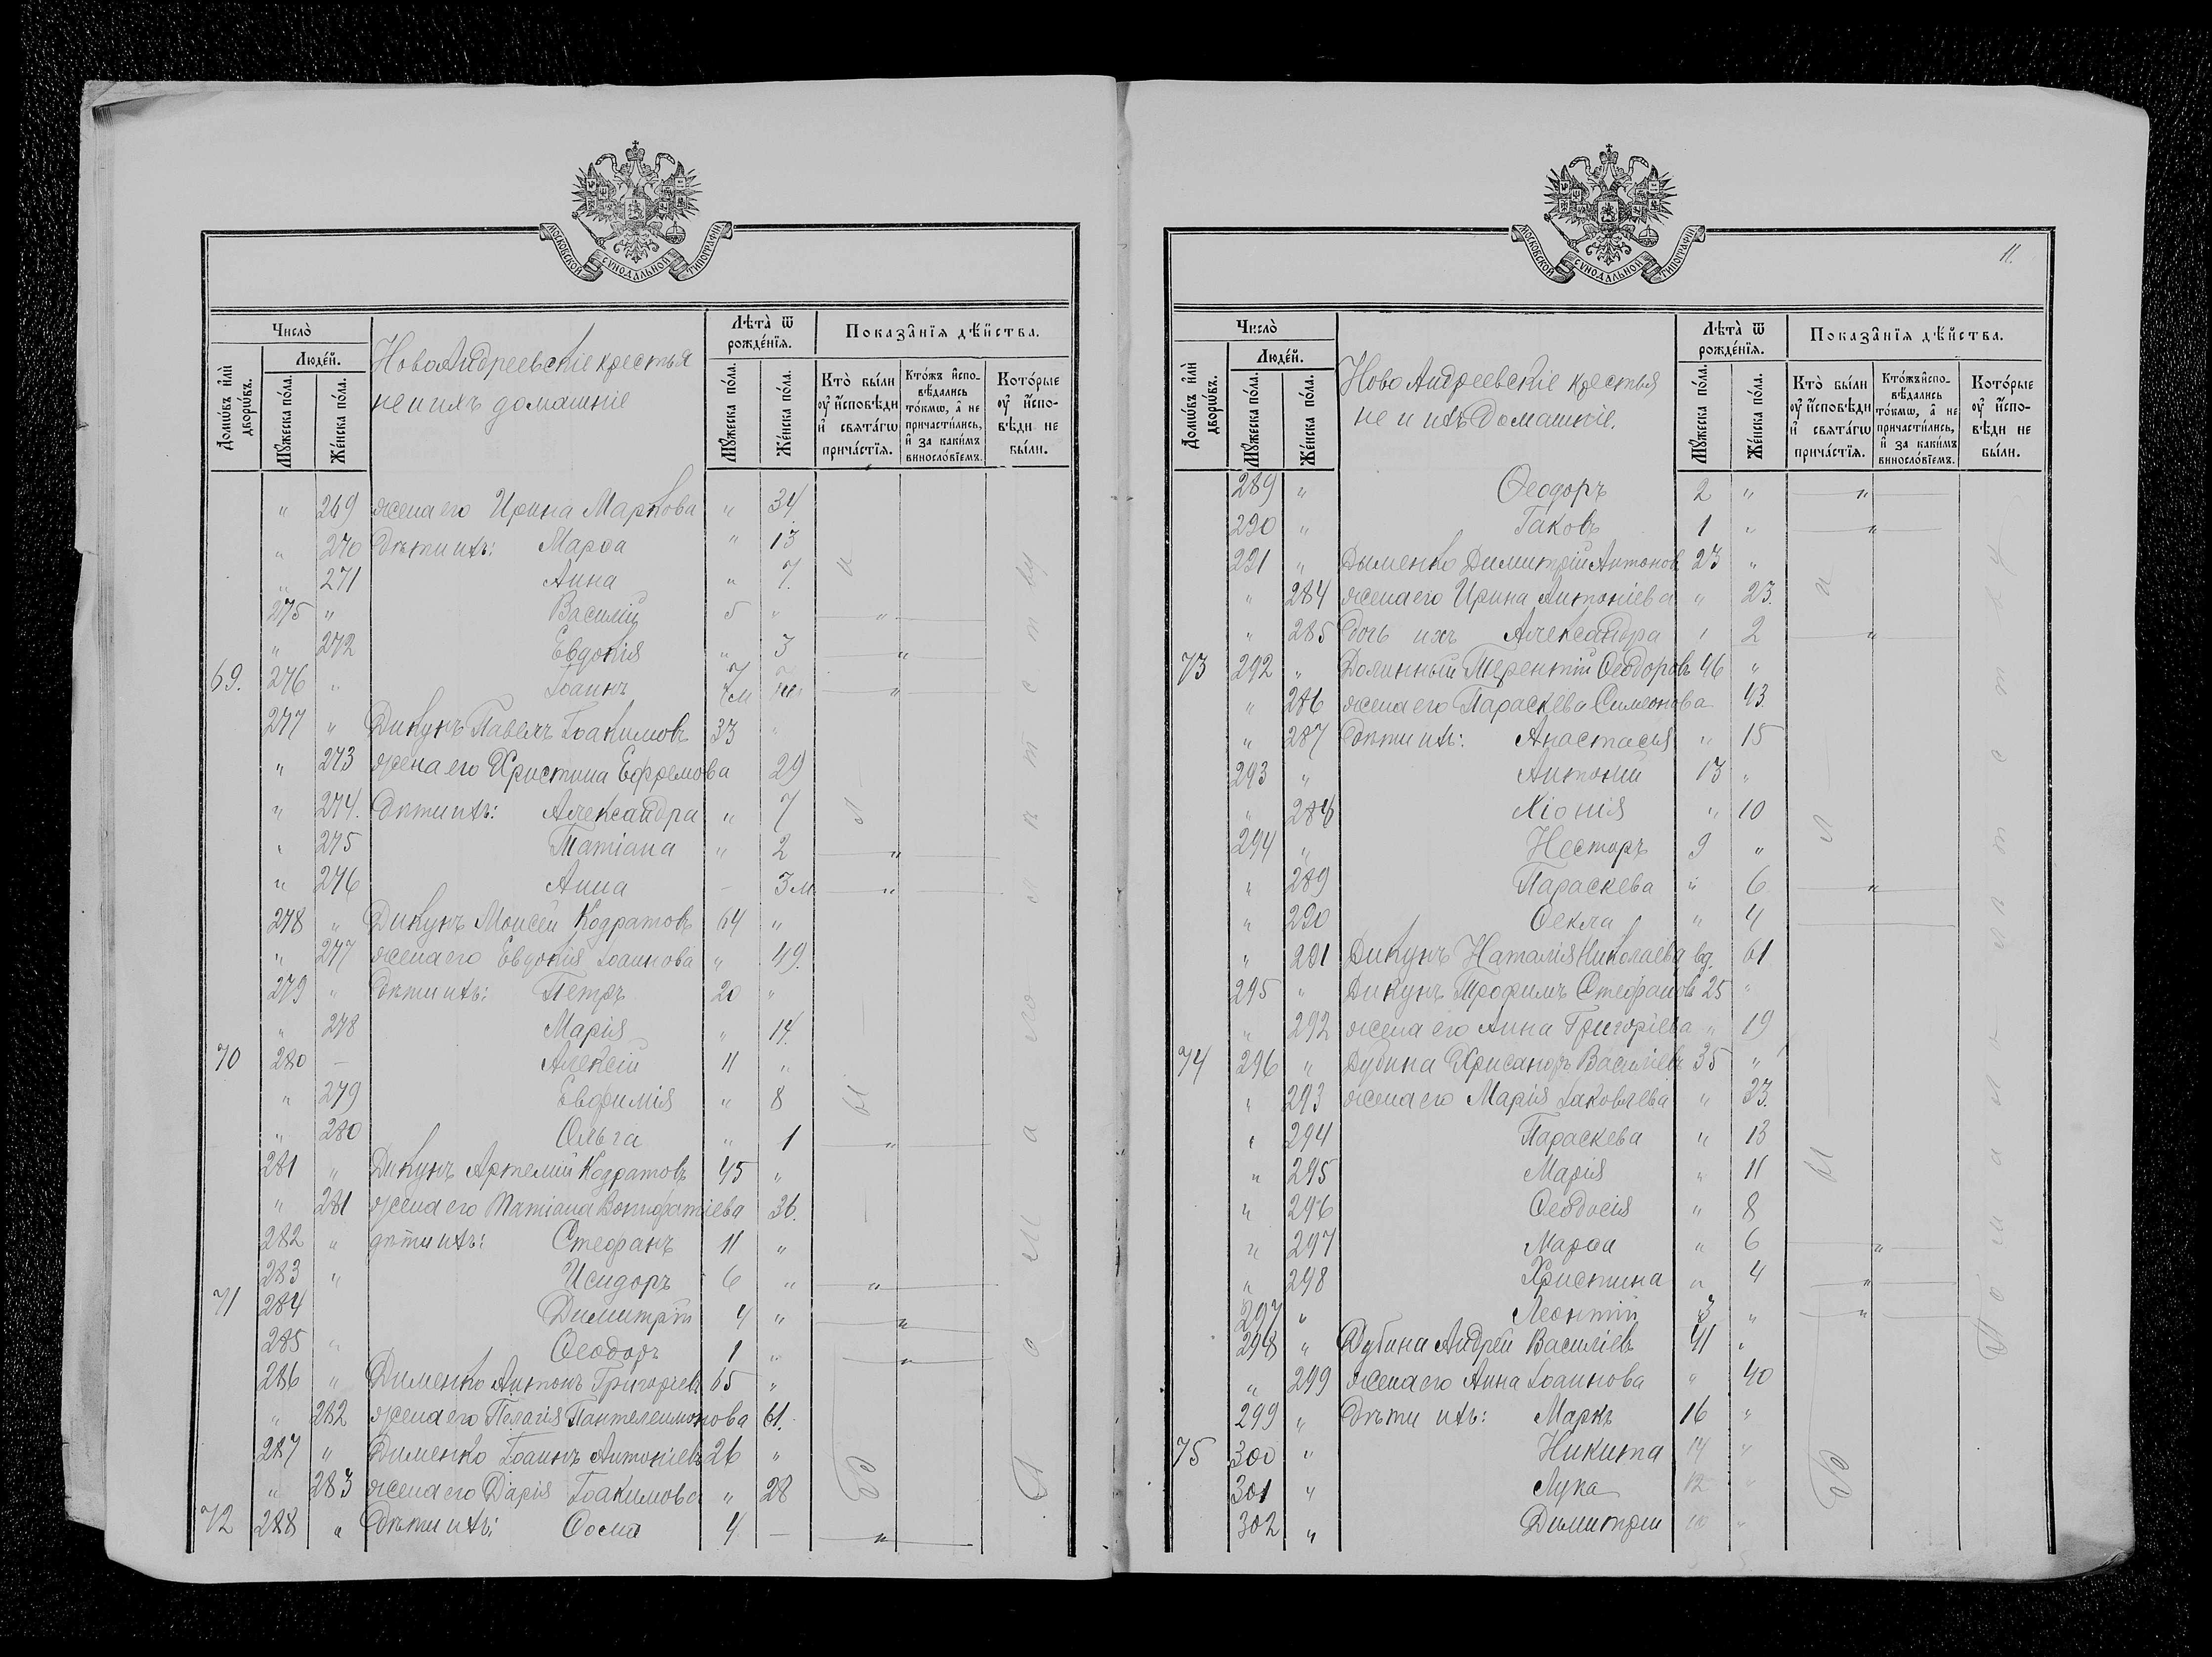 МОСКОВСКОЙ СѴНОДАЛЬНОЙ ТИПОГРАФІИ
Число̀
Люде́й.
Домѡ́въ и҆лѝ дворѡ́въ.
Мꙋ́жеска по́ла.
Же́нска по́ла.
НовоАндреевскіе крестья
не и ихъ домашніе
Лѣта̀ ѿ рожде́нїѧ.
Мꙋ́жеска по́ла.
Же́нска по́ла.
Показа̂нїѧ дѣ́йства.
Кто̀ бы́ли ᲂу҆ и҆сповѣ́ди и҆ свѧта́гѡ прича́стїѧ.
Кто́жъ и҆споВѣ́дались то́кмѡ, а҆ не причасти́лись, и҆ за каки́мъ виносло́вїемъ.
Кото́рые ᲂу҆ и҆сповѣди не бы́ли.
" 269 жена его Ирина Маркова " 34
" 270 Дѣти ихъ: Марѳа " 13
" 271 Анна " 7
275 " Василій 5 "
" 272 Евдокія " 3
69. 276 " Іоаннъ 7м
277 " Дикунъ Павелъ Іоакимовъ 33 "
" 273 жена его Христина Ефремова 29
" 274. Дѣти ихъ: Александра " 7
" 275 Татіана " 2
" 276 Анна – 3м
278 " Дикунъ Моисей Кодратовъ 64 "
" 277 жена его Евдокія Іоаннова " 49.
279 " Дѣти ихъ: Петръ 20 "
" 278 Марія " 14.
70 280 – Алексій 11 "
" 279 Евфимія " 8
" 280 Ольга " 1
281 " Дикунъ Артемій Кодратовъ 45 "
" 281 жена его Татіана Вонифатіева 36.
282 " дѣти ихъ: Стефанъ 11 "
283 " Исидоръ 6 "
71 284 Димитрій 4 "
285 " Ѳеодоръ 1 "
286 " Дименко Антонъ Григорьевъ 65 "
" 282 жена его Пелагія Пантелеимонова 61.
287 " Дименко Іоаннъ Антоніевъ 26 "
" 283 жена его Дарія Іоакимова " 28
72 288 " Дѣти ихъ: Ѳома 4 –
Б ы л и
П о м а л о л ѣ т с т в у
МОСКОВСКОЙ СѴНОДАЛЬНОЙ ТИПОГРАФІИ
11.
Число̀
Люде́й.
Домѡ́въ и҆лѝ дворѡ́въ.
Мꙋ́жеска по́ла.
Же́нска по́ла.
Ново Андреевскіе крестья
не и ихъ Домашніе.
Лѣта̀ ѿ рожде́нїѧ.
Мꙋ́жеска по́ла.
Же́нска по́ла.
Показа̂нїѧ дѣ́йства.
Кто̀ бы́ли ᲂу҆ и҆сповѣ́ди и҆ свѧта́гѡ прича́стїѧ.
Кто́жъ и҆споВѣ́дались то́кмѡ, а҆ не причасти́лись, и҆ за каки́мъ виносло́вїемъ.
Кото́рые ᲂу҆ и҆сповѣди не бы́ли.
289 " Ѳеодоръ 2 "
290 " Іаковъ 1 "
291 " Дыменко Димитрій Антонов 23 "
" 284 жена его Ирина Антоніева " 23.
" 285 Дочь ихъ Александра " 2
73 292 " Долинный Терентій Ѳеодоровъ 46 "
" 286 жена его Параскева Симеонова 43.
" 287 Дѣти ихъ: Анастасія " 15
293 " Антоній 13 "
" 288 Хіонія " 10
294 " Несторъ 9 "
" 289 Параскева " 6
" 290 Ѳекла " 4
" 291 Дикунъ Наталія Николаева вд. 61
295 " Дикунъ Трофимъ Стефановъ 25 "
" 292 жена его Анна Григоріева " 19
74 296 " Дубина Хрисанѳъ Василіевъ 35 "
" 293 жена его Марія Іаковлева " 33.
" 294 Параскева " 13
" 295 Марія " 11
" 296 Ѳеодосія " 8
" 297 Марѳа " 6
" 298 Христина " 4
297 " Леонтій 3 "
298 " Дубина Андрей Василіевъ 41 "
" 299 жена его Анна Іоаннова " 40
299 " Дѣти ихъ: Маркъ 16 "
75 300 " Никита 14 "
301 " Лука 12 "
302 " Димитрій 10 "
Б ы л и